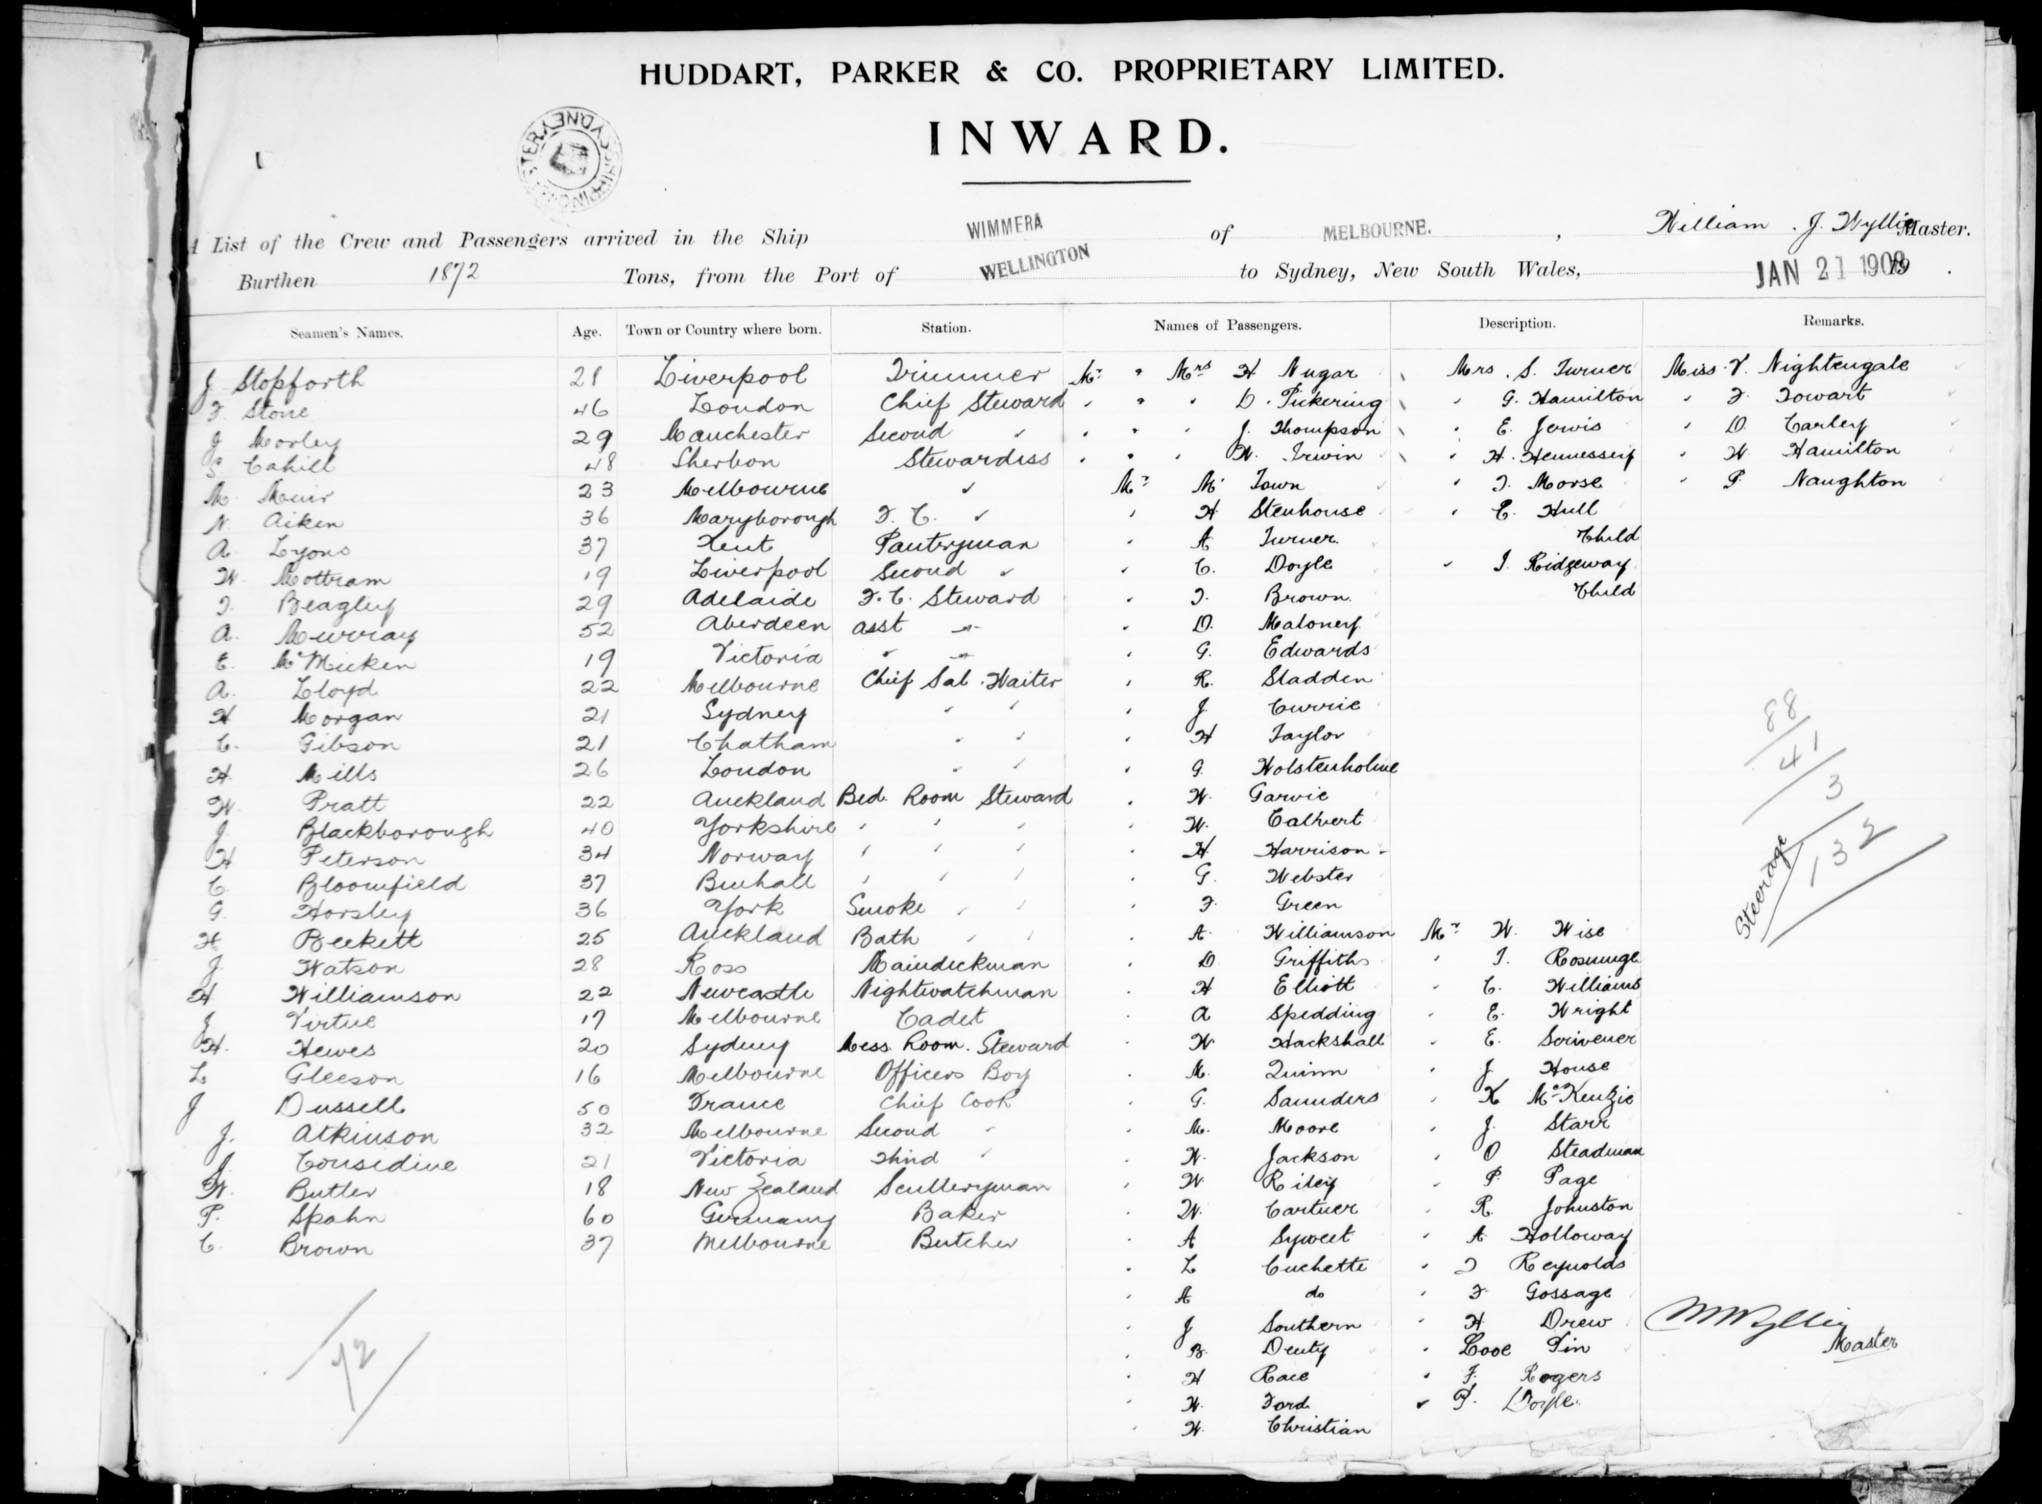 HUDDART, PARKER & CO. PROPRIETARY LIMITED.
INWARD.
SYDNEY
A List of the Crew and Passengers arrived in the Ship WIMMERA of MELBOURNE. , William . J. Wyllie Master.
Burthen 1872 Tons, from the Port of WELLINGTON to Sydney, New South Wales, JAN 21 1908 .
Seamen's Names. Age. Town or Country where born. Station. Names of Passengers. Description. Remarks.
J Stopforth 21 Liverpool Trimmer Mr " Mrs H Nugar Mrs . S. Turner Miss V. Nightengale
F. Stone 46 London Chief Steward " " " D. Pickering " G. Hamilton " F. Towart
J Morley 29 Manchester Second " " " " J. Thompson " E. Jervis " D. Carley
S Cahill 48 Sherbon Stewardess " " " W. Irwin " H. Hennessey " W Hamilton
M. Muir 23 Melbourne " Mr M Town " T. Morse " P. Naughton
N. Aiken 36 Maryborough F. C. " " H Stenhouse " E. Hull
A Lyons 37 Kent Pantryman " A Turner. Child
W. Mottram 19 Liverpool Second " " C. Doyle " I. Ridgeway
T. Beagley 29 Adelaide F. C. Steward " T. Brown. Child
A. Murray 52 Aberdeen asst " " D. Maloney
E. McMicken 19 Victoria " " " G. Edwards
A. Lloyd 22 Melbourne Chief Sal. Waiter " R. Sladden
H Morgan 21 Sydney " " " J. Currie
C. Gibson 21 Chatham " " " H Taylor
H. Mills 26 London " " " G. Wolstenholme
W. Pratt 22 Auckland Bed. Room Steward " W. Garvie
J. Blackborough 40 Yorkshire " " " " W. Calvert
H Peterson 34 Norway " " " " H Harrison
C. Bloomfield 37 " " " " G. Webster
G. Horsley 36 York Smoke " " " F. Green
H. Beckett 25 Auckland Bath " " " A. Williamson Mr W. Wise
J. Watson 28 Ross Maindeckman " D Griffiths " T.
H Williamson 22 Newcastle Nightwatchman " H Elliott " C. Williams
J. Virtue 17 Melbourne Cadet " A Spedding " E. Wright
H. Hewes 20 Sydney Mess Room. Steward " W Hackshall " E. Scrivener
L Gleeson 16 Melbourne Officers Boy " M. Quinn " J House
J Dussell 50 France Chief Cook " G. Saunders " K McKenzie
J. Atkinson 32 Melbourne Second " " M. Moore " J. Starr
J. Considine 21 Victoria Third " " W. Jackson " O Steadman
W. Butler 18 New Zealand Sculleryman " W Riley " P. Page
P. Spahn 60 Germany Baker " W. Cartner " R. Johnston
C. Brown 37 Melbourne Butcher " A Syweet " A. Holloway
" L Cuchette " T Reynolds
" A do " F. Gossage
" J Southern " H Drew
" B. Denty " Looe Tin
" H Race " F. Rogers
" W. Ford " P. Doyle.
" W. Christian
88
41
3
132
Steerage
72
W Wyllie
Master